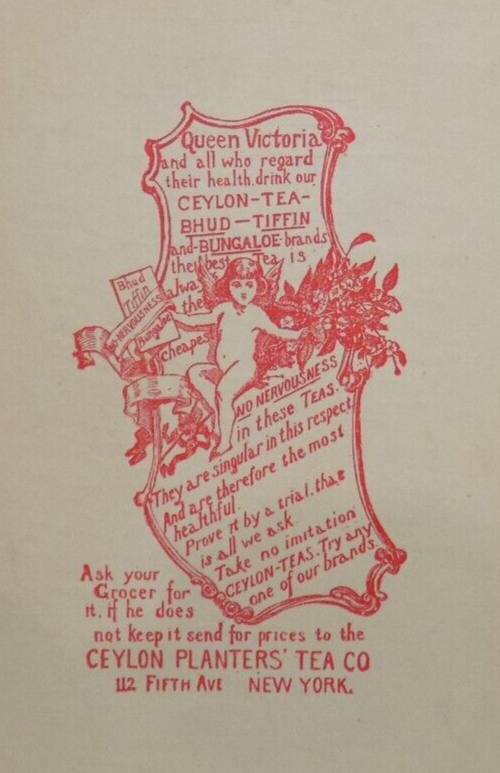 Queen Victoria
and all who regard
their health, drink our
CEYLON-TEA-
BHUD — TIFFIN
and-BUNGALOE-brands
the best Tea IS
always
the
cheapest
Bhud
Tiffin
NO-NERVOUSNESS
Bungaloe
NO NERVOUSNESS
in these TEAS.
They are singular in this respect
And are therefore the most
healthful.
Prove it by a trial. that
is all we ask.
Take no imitation
CEYLON-TEAS. Try any
one of our brands.
Ask your
Grocer for
it. if he does
not keep it send for prices to the
CEYLON PLANTERS' TEA CO
112 FIFTH AVE NEW YORK.